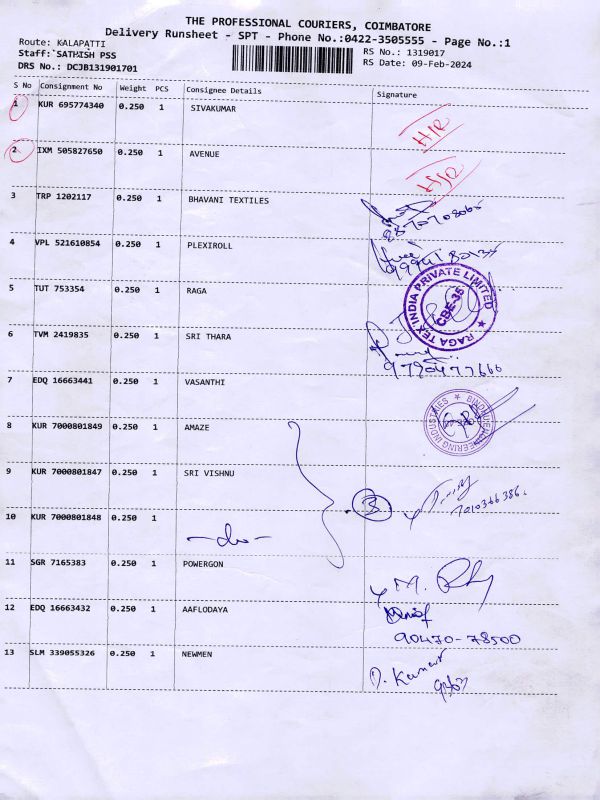 THE PROFESSIONAL COURIERS, COIMBATORE
Delivery Runsheet - SPT - Phone No.:0422-3505555 - Page No.:1
Route: KALAPATTI
Staff: SATHISH PSS
DRS No.: DCJB131901701
RS No.: 1319017
RS Date: 09-Feb-2024
S No Consignment No Weight PCS Consignee Details Signature
1 KUR 695774340 0.250 1 SIVAKUMAR
2 IXM 505827650 0.250 1 AVENUE
3 TRP 1202117 0.250 1 BHAVANI TEXTILES
4 VPL 521610854 0.250 1 PLEXIROLL
5 TUT 753354 0.250 1 RAGA
RAGA TEX INDIA PRIVATE LIMITED
CBE-35
6 TVM 2419835 0.250 1 SRI THARA
7 EDQ 16663441 0.250 1 VASANTHI
8 KUR 7000801849 0.250 1 AMAZE
9 KUR 7000801847 0.250 1 SRI VISHNU
3
7010366386
10 KUR 7000801848 0.250 1
-do-
11 SGR 7165383 0.250 1 POWERGON
12 EDQ 16663432 0.250 1 AAFLODAYA
90470-78500
13 SLM 339055326 0.250 1 NEWMEN
D. Kumar